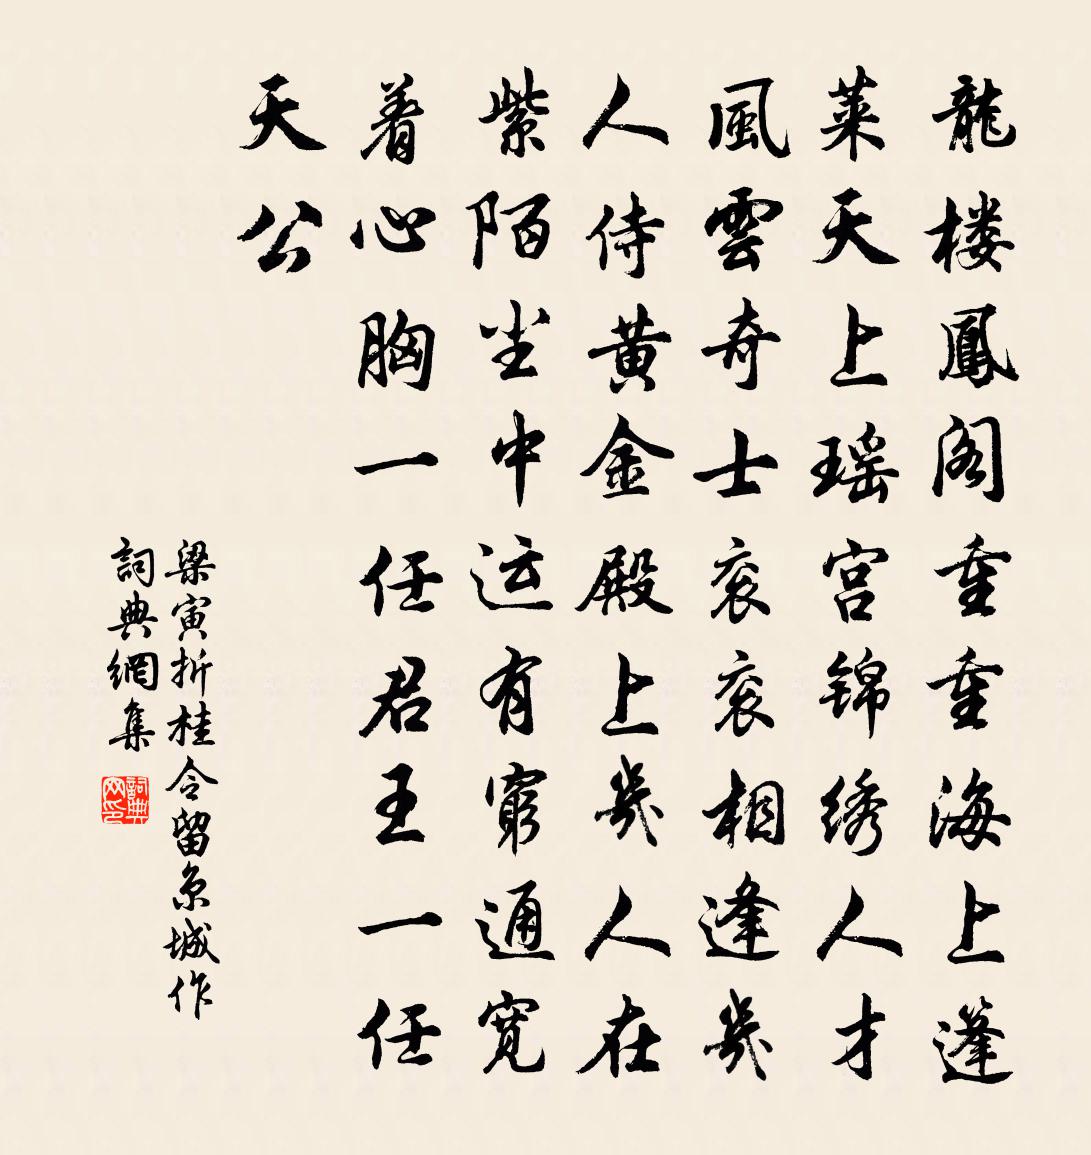 龍楼鳳阁重重海上蓬
莱天上瑶宫锦绣人才
風雲奇士衮衮相逢幾
人侍黄金殿上幾人在
紫陌尘中运有窮通寛
着心胸一任君王一任
天公
梁寅折桂令留京城作
詞典網集
詞典网印